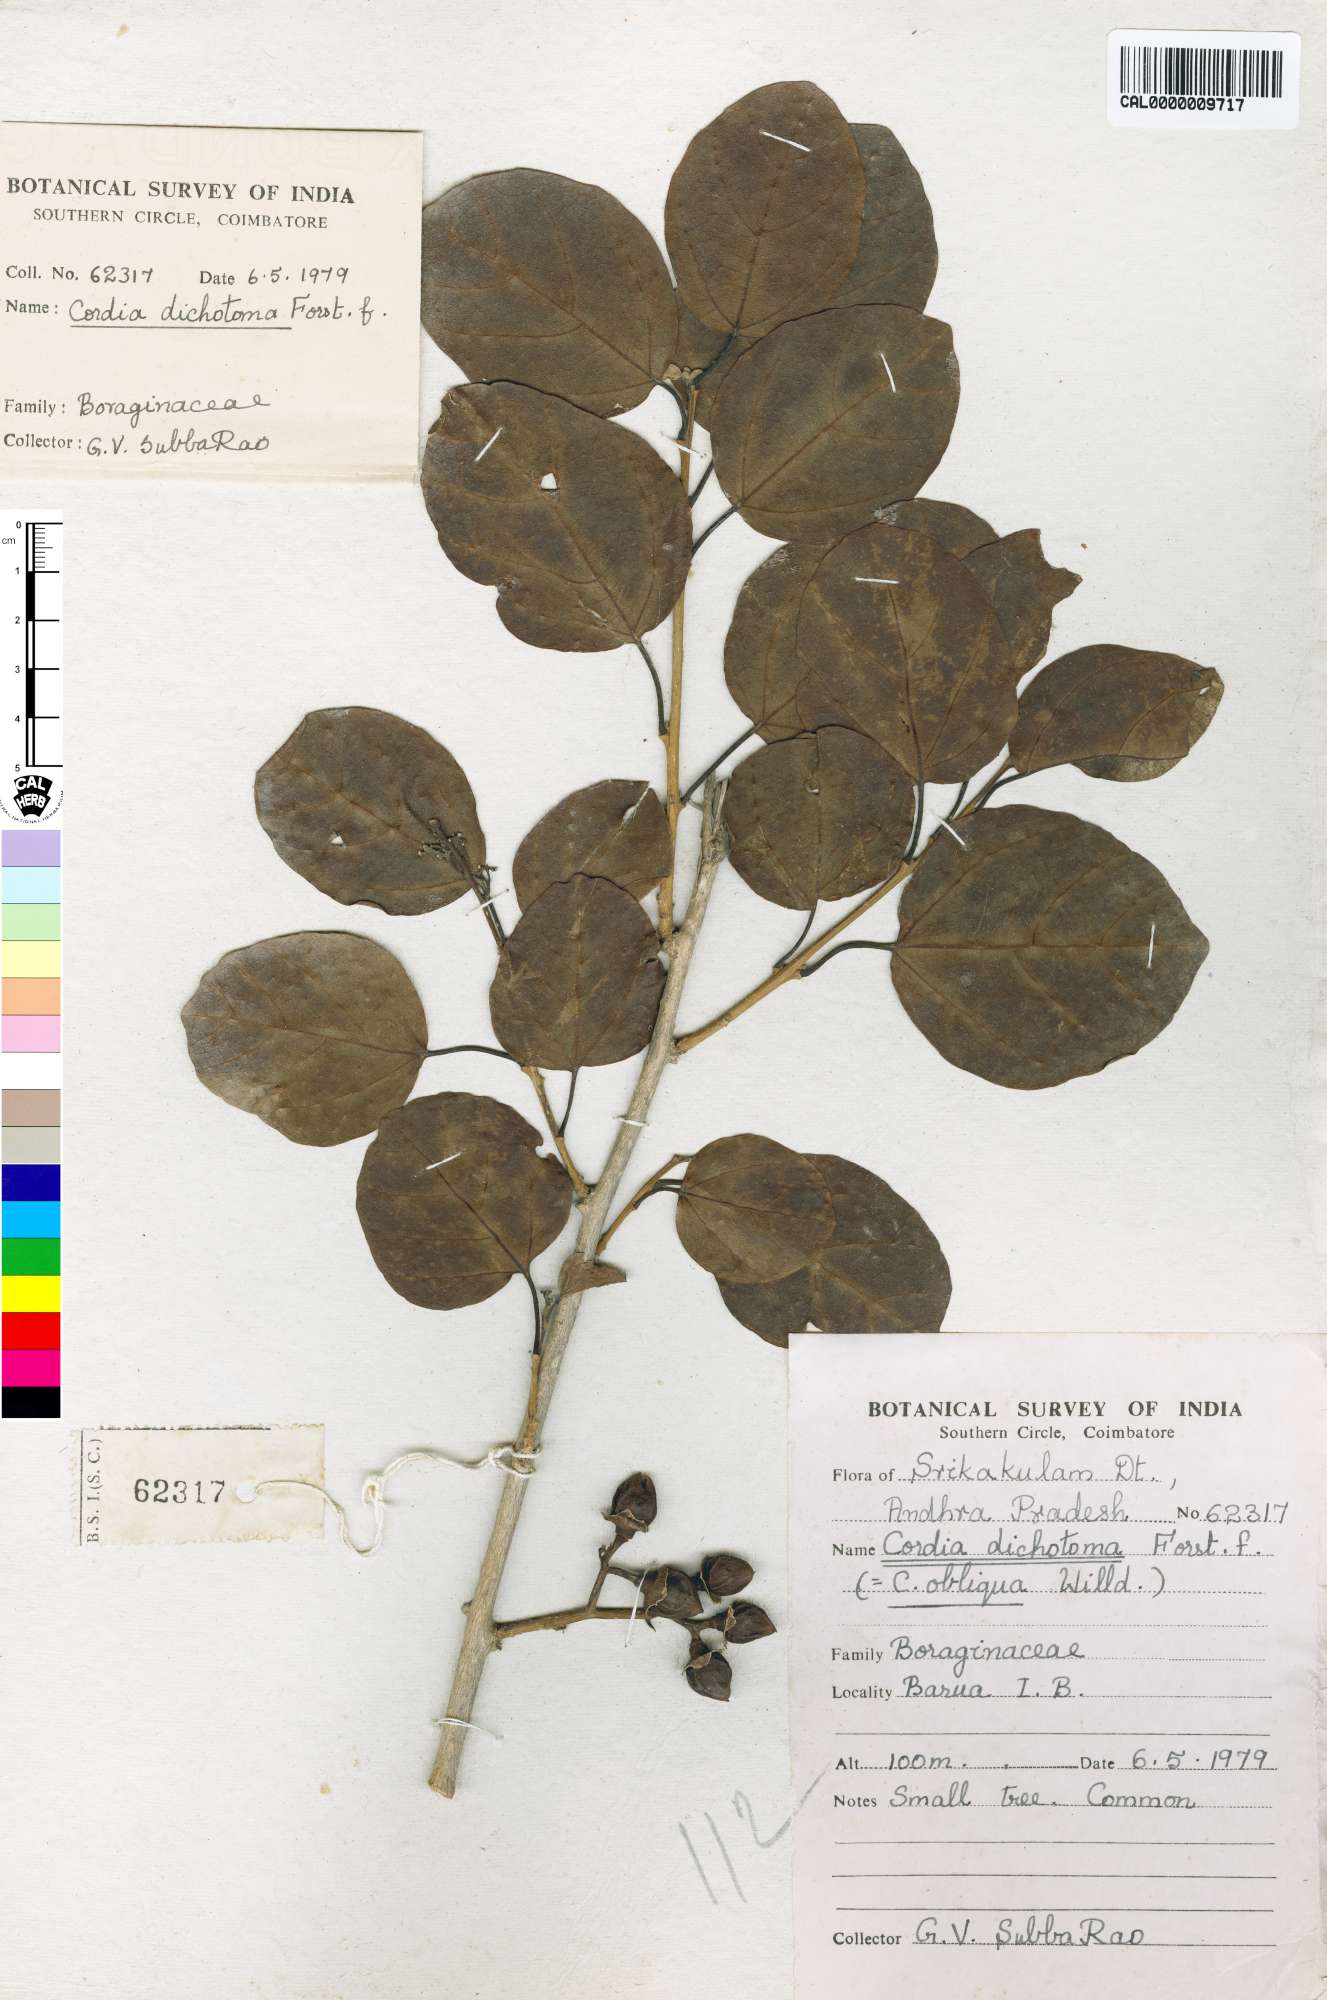 CAL0000009717
BOTANICAL SURVEY OF INDIA
SOUTHERN CIRCLE, COIMBATORE
Coll. No. 62317 Date 6.5.1979
Name: Cordia dichotoma Forst. f.
Family: Boraginaceae
Collector: G.V. SubbaRao
0
cm
1
2
3
4
5
CAL
HERB
B.S.I.(S.C.)
62317
112
BOTANICAL SURVEY OF INDIA
Southern Circle, Coimbatore
Flora of Srikakulam Dt.,
Andhra Pradesh No 62317
Name Cordia dichotoma Forst. f.
(= C. obliqua Willd.)
Family Boraginaceae
Locality Barua I. B.
Alt. 100m. Date 6.5.1979
Notes Small tree. Common
Collector G.V. SubbaRao